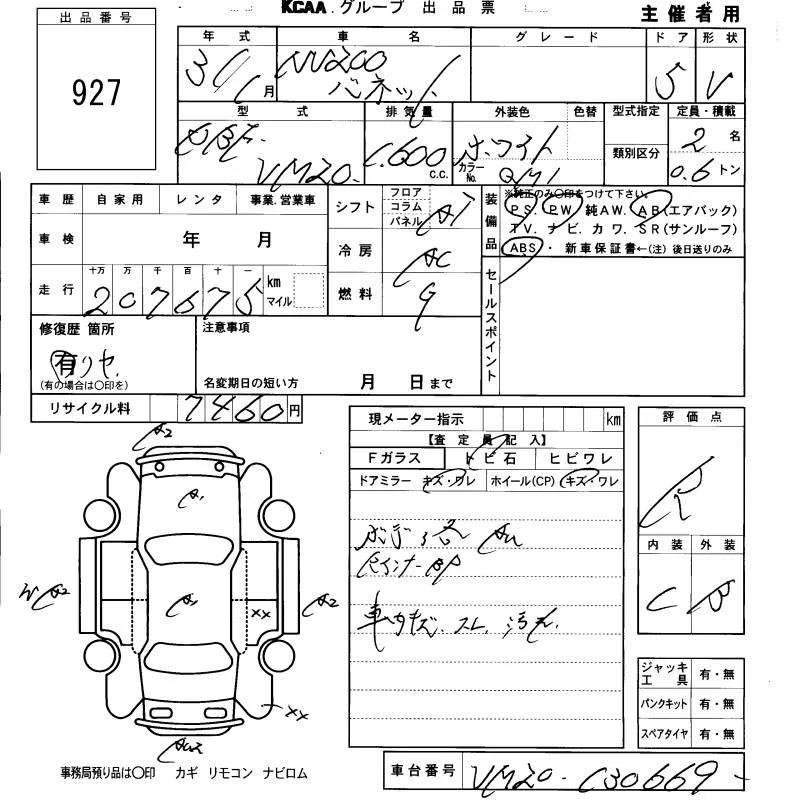 KCAA.グループ 出品票
主催者用
出品番号
927
年式 車名 グレード ドア 形状
31 月 NV200 バネット 5 V
型式 排気量 外装色 色替 型式指定 定員・積載
DBF- VM20 1,600 C.C. ホワイト カラーNo. QM1 類別区分 2名 0.6トン
車歴 自家用 レンタ 事業.営業車
シフト フロア コラム パネル AT
装備品 ※純正のみ○印をつけて下さい。
PS. PW. 純AW. AB(エアバック)
TV. ナビ. カワ. SR(サンルーフ)
ABS・ 新車保証書←(注) 後日送りのみ
車検 年 月
冷房 AC
走行 十万 万 千 百 十 一 km マイル
207675
燃料 G
セールスポイント
修復歴 箇所
有リヤ.
(有の場合は○印を)
注意事項
名変期日の短い方 月 日まで
リサイクル料 7460円
現メーター指示 km
【査定員記入】
Fガラス トビ石 ヒビワレ
ドアミラー キズ・ワレ ホイール(CP) キズ・ワレ
評価点
R
内装 外装
C B
A2
A1
ボディ各 AU
A1
A2
XX
XX
車内キズ.スレ.汚れ.
ジャッキ工具 有・無
パンクキット 有・無
スペアタイヤ 有・無
事務局預り品は○印 カギ リモコン ナビロム
車台番号 VM20-130669-